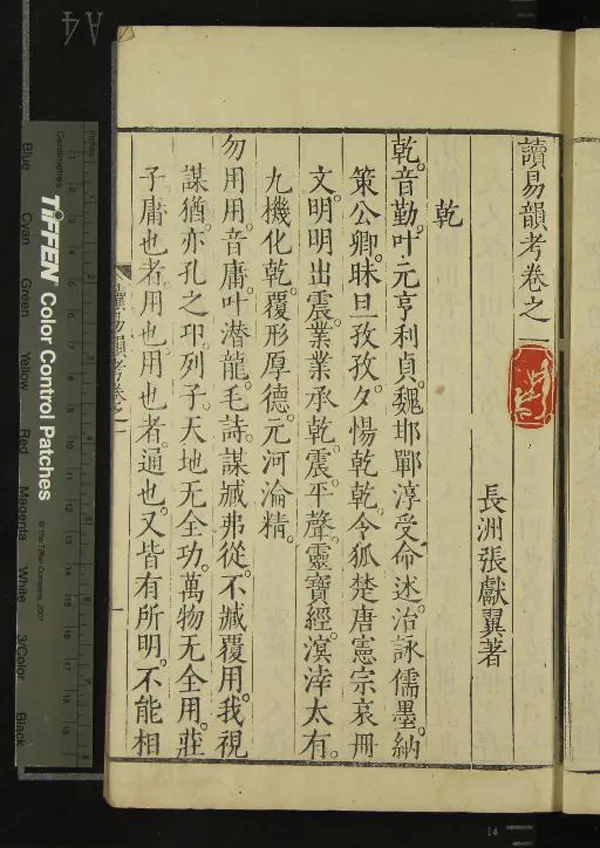 讀易韻考卷之一
長洲張獻翼著
乾
乾。音勤。叶元亨利貞。魏邯鄲淳受命述。治詠儒墨。納
策公卿。昧旦孜孜。夕惕乾乾。令狐楚唐憲宗哀冊
文。明明出震。業業承乾。震。平聲。靈寶經。溟涬太有。
九機化乾。覆形厚德。元河淪精。
勿用用。音庸。叶潛龍。毛詩。謀臧弗從。不臧覆用。我視
謀猶。亦孔之邛。列子。天地无全功。萬物无全用。莊
子庸也者。用也。用也者。通也。又皆有所明。不能相
讀易韻考卷之一
A4
Inches
Centimetres
TIFFEN Color Control Patches
© The Tiffen Company, 2007
Blue
Cyan
Green
Yellow
Red
Magenta
White
3/Color
Black
14